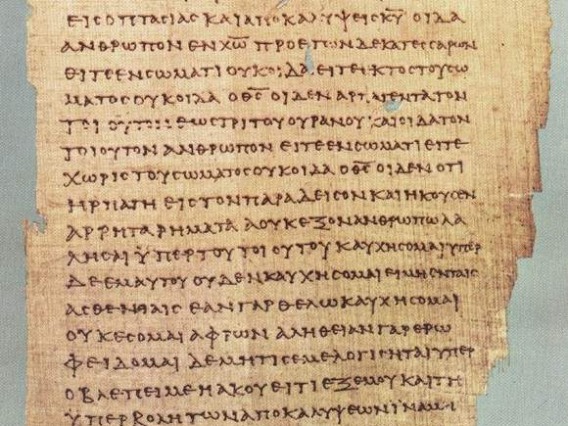 ΕΙϹΟΠΤΑϹΙΑϹΚΑΙΑΠΟΚΑΛΥΨΕΙϹΚ̅Υ̅ ΟΙΔΑ
ΑΝΘΡΩΠΟΝ ΕΝ Χ̅Ω̅ ΠΡΟΕΤΩΝΔΕΚΑΤΕϹϹΑΡΩΝ
ΕΙΤΕΕΝϹΩΜΑΤΙΟΥΚΟΙΔΑΕΙΤΕΕΚΤΟϹΤΟΥϹΩ
ΜΑΤΟϹΟΥΚΟΙΔΑ ΟΘ̅Ϲ̅ ΟΙΔΕΝ ΑΡΠΑΓΕΝΤΑΤΟΝ
ΤΟΙΟΥΤΟΝΕΩϹΤΡΙΤΟΥΟΥΡΑΝΟΥΚΑΙΟΙΔΑΤΟΝ
ΤΟΙΟΥΤΟΝ ΑΝΘΡΩΠΟΝ ΕΙΤΕΕΝϹΩΜΑΤΙ ΕΙΤΕ
ΧΩΡΙϹΤΟΥϹΩΜΑΤΟϹΟΥΚΟΙΔΑ ΟΘ̅Ϲ̅ ΟΙΔΕΝ ΟΤΙ
ΗΡΠΑΓΗ ΕΙϹΤΟΝΠΑΡΑΔΕΙϹΟΝΚΑΙΗΚΟΥϹΕΝ
ΑΡΡΗΤΑΡΗΜΑΤΑ ΑΟΥΚΕΞΟΝΑΝΘΡΩΠΩΛΑ
ΛΗϹΑΙ ΫΠΕΡΤΟΥΤΟΙΟΥΤΟΥ ΚΑΥΧΗϹΟΜΑΙΥΠΕΡ
ΔΕΕΜΑΥΤΟΥΟΥΔΕΝΚΑΥΧΗϹΟΜΑΙΕΙΜΗΕΝΤΑΙϹ
ΑϹΘΕΝΙΑΙϹ ΕΑΝΓΑΡΘΕΛΩΚΑΥΧΗϹΟΜΑΙ
ΟΥΚΕϹΟΜΑΙΑΦΡΩΝ ΑΛΗΘΕΙΑΝΓΑΡΕΡΩ
ΦΕΙΔΟΜΑΙ ΔΕΜΗΤΙϹΕΜΕΛΟΓΙϹΗΤΑΙΥΠΕΡ
ΟΒΛΕΠΕΙΜΕΗΑΚΟΥΕΙΤΙΕΞΕΜΟΥΚΑΙΤΗ
ΫΠΕΡΒΟΛΗΤΩΝΑΠΟΚΑΛΥΨΕΩΝΙΝΑΜΗ